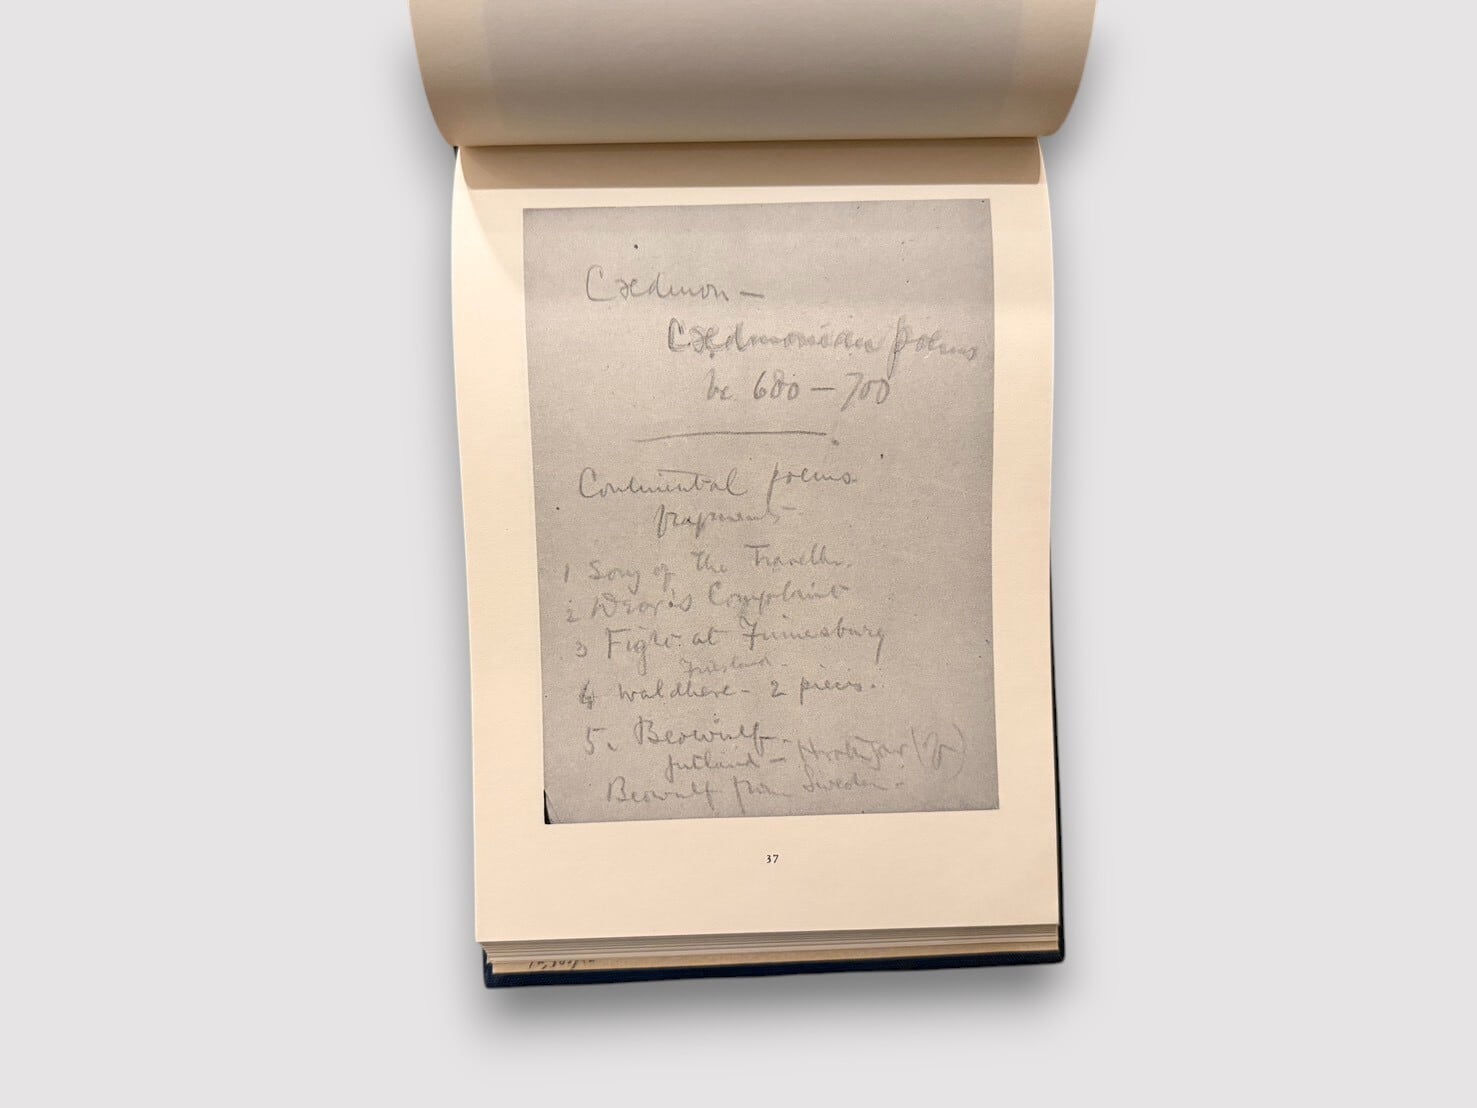 Cædmon —
Cædmonian poems
be 680 — 700
Continental poems
fragments —
1 Song of the Traveller.
2 Deor's Complaint
3 Fight at Finnesburg
Friesland —
4 Waldhere — 2 pieces.
5. Beowulf —
Jutland — Hrothgar
Beowulf from Sweden —
37